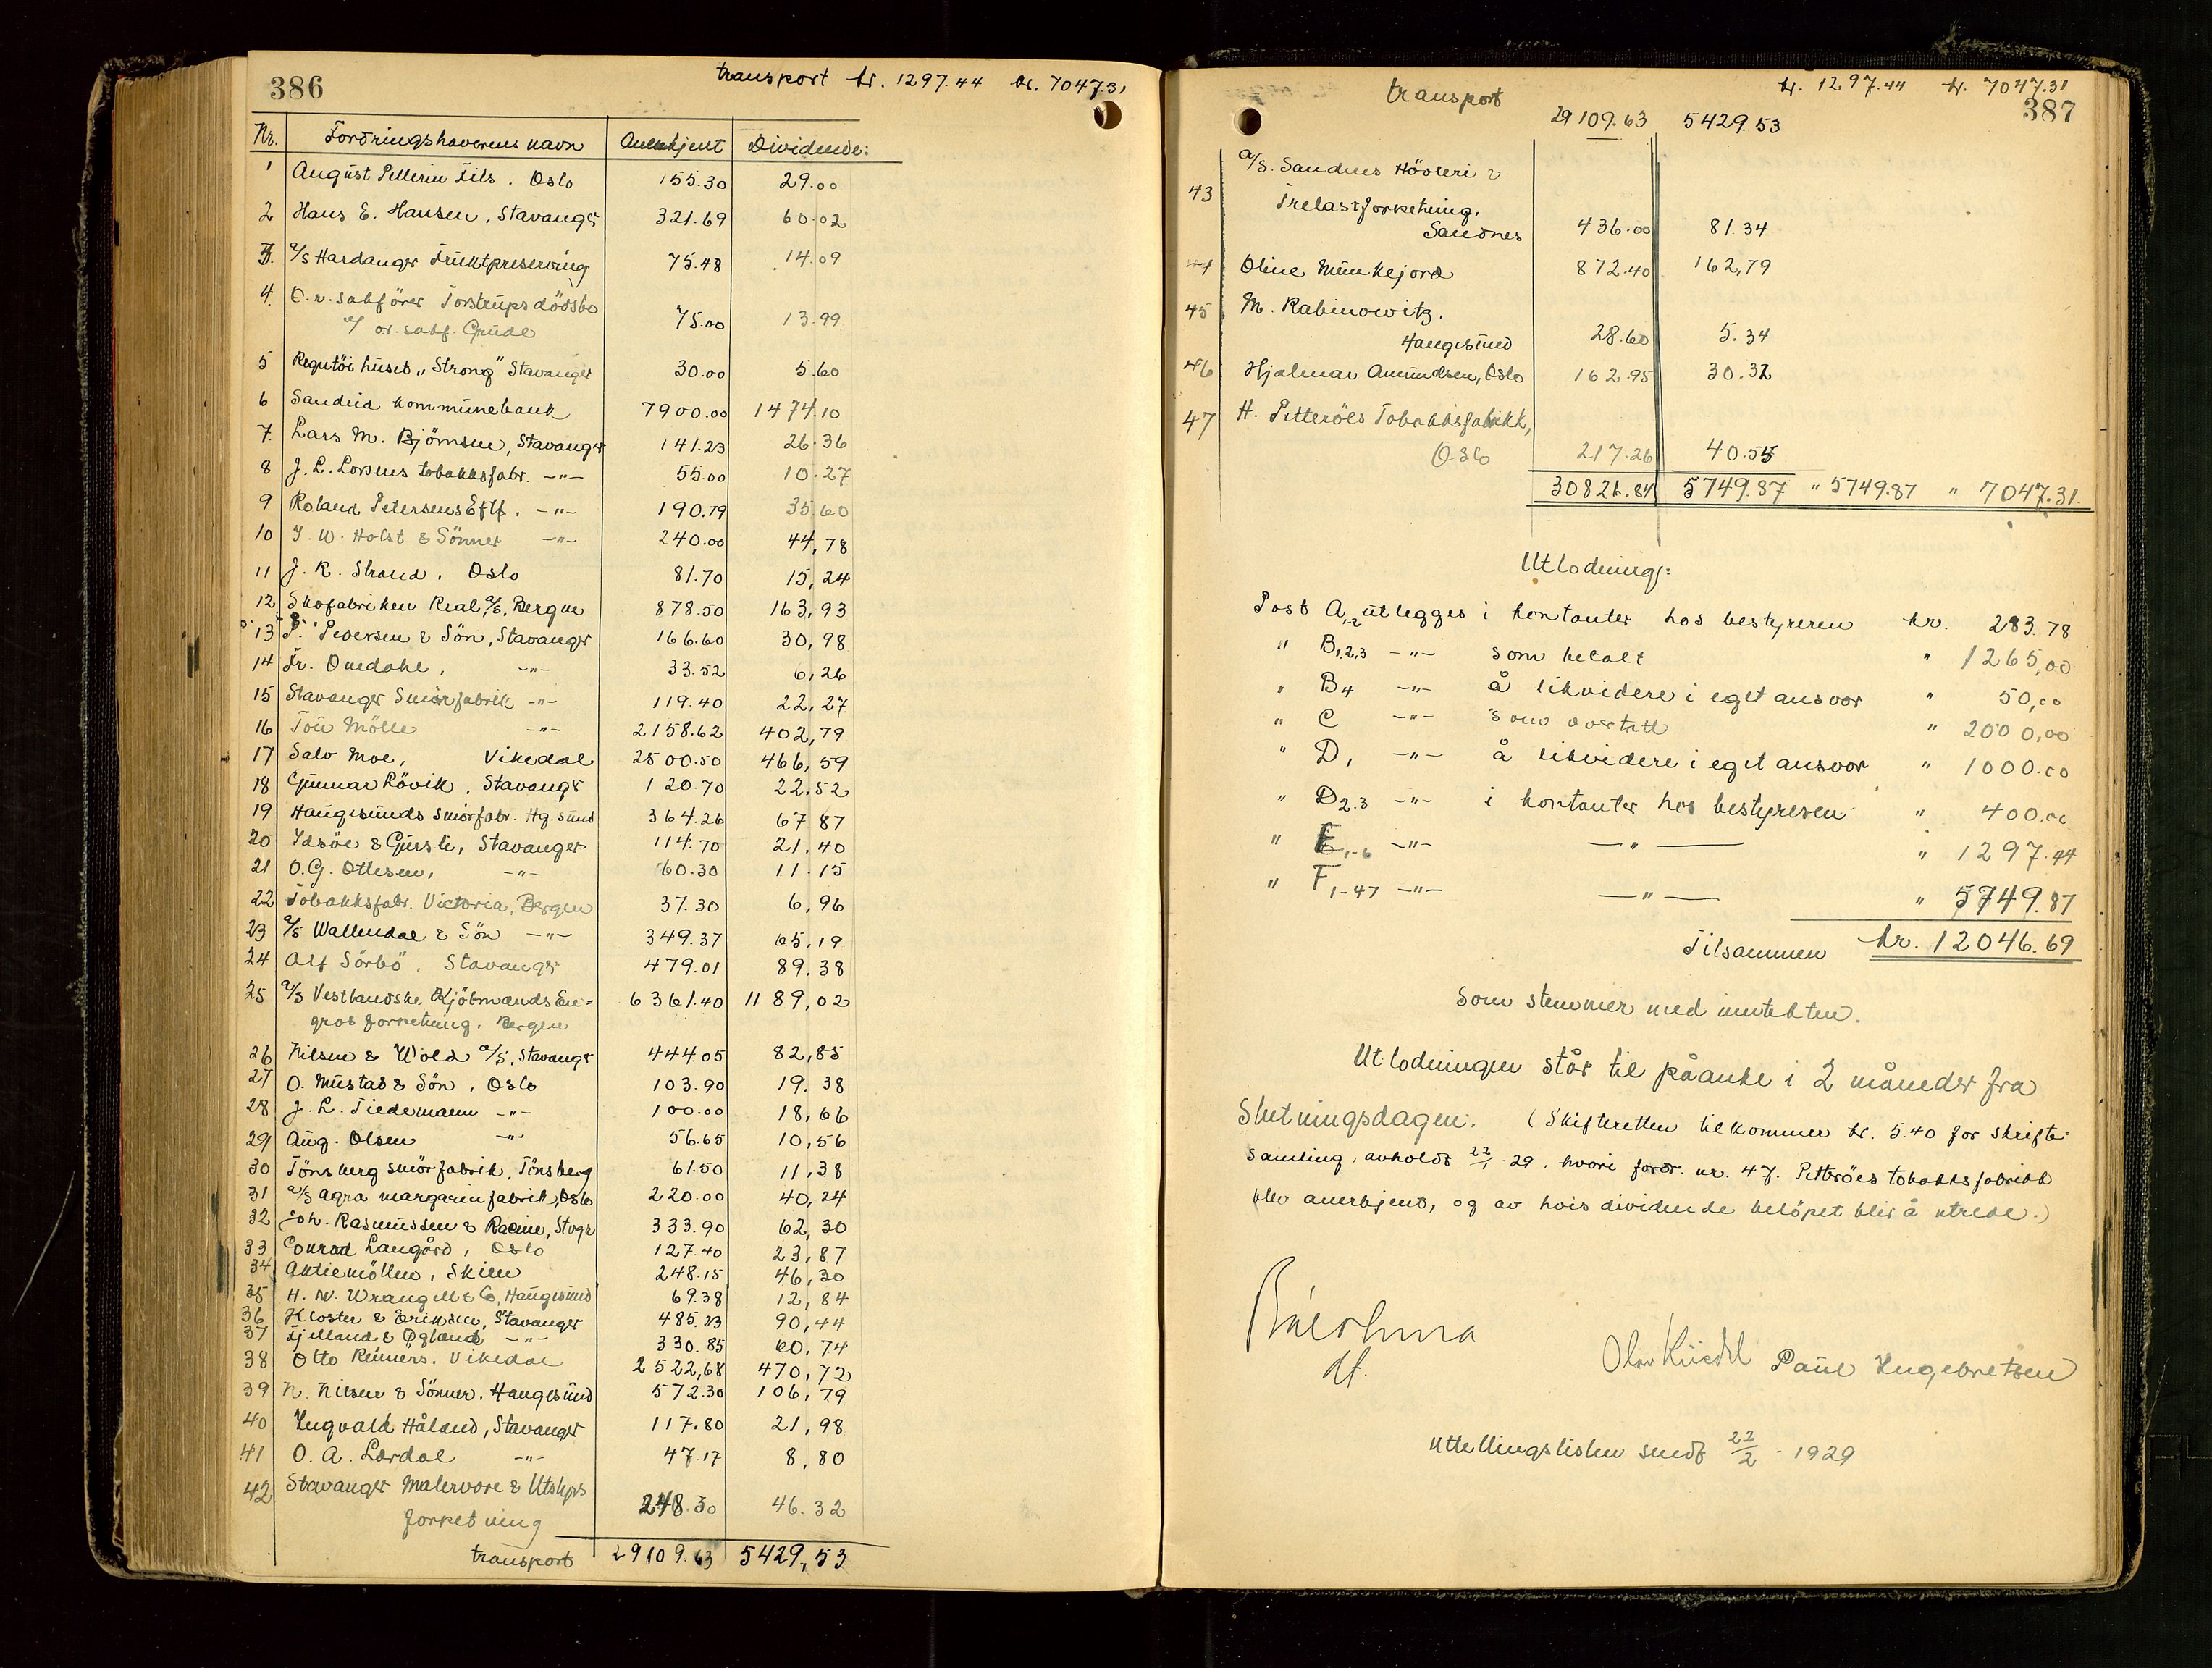 386
transport kr. 1297.44 kr. 7047.31
Nr. Fordringshaverens navn Anerkjent Dividende:
1 August Pellerin Fils. Oslo 155.30 29.00
2 Hans E. Hansen, Stavanger 321.69 60.02
3. A/S Hardanger Fruktpreserving 75.48 14.09
4. O.r.sakfører Torstrups dødsbo
v/ or.sakf. Gude 75.00 13.99
5 Regntöi huset "Strong" Stavanger 30.00 5.60
6 Sandeid kommunebank 7900.00 1474.10
7. Lars M. Björnsen, Stavanger 141.23 26.36
8 J. L. Lorsens tobakksfabr. -"- 55.00 10.27
9 Roland Petersens Eftf. -"- 190.79 35.60
10 I. W. Holst & Sönner -"- 240.00 44,78
11 J. R. Strand. Oslo 81.70 15,24
12 Skofabriken Real A/S, Bergen 878.50 163,93
13 P. Pedersen & Sön, Stavanger 166.60 30,98
14 Fr. Omdahl, -"- 33.52 6,26
15 Stavanger Smörfabrik -"- 119.40 22,27
16 Tou Mölle -"- 2158.62 402,79
17 Salv Moe, Vikedal 2500.50 466,59
18 Gunnar Lövik, Stavanger 120.70 22.52
19 Haugesunds smörfabr. Hg.sund 364.26 67 87
20 Idsöe & Gjersli, Stavanger 114.70 21.40
21 O.G. Ottesen, -"- 60.30 11.15
22 Tobakksfabr. Victoria, Bergen 37.30 6,96
23 A/S Wallendal & Sön -"- 349.37 65,19
24 Alf Sörbö. Stavanger 479.01 89.38
25 A/S Vestlandske Kjöbmands En-
gros forretning. Bergen 6361.40 1189,02
26 Nilsen & Wold A/S, Stavanger 444.05 82,85
27 O. Mustad & Sön, Oslo 103.90 19.38
28 J. L. Tiedemann -"- 100.00 18,66
29 Aug. Olsen -"- 56.65 10,56
30 Tönsberg smörfabrik, Tönsberg 61.50 11,38
31 A/S Agra margarinfabrik, Oslo 220.00 40,24
32 Joh. Rasmussen & Racine, Stvgr 333.90 62,30
33 Conrad Langård, Oslo 127.40 23,87
34 Aktiemöllen, Skien 248.15 46,30
35 H. M. Wrangell & Co, Haugesund 69.38 12,84
36 Kloster & Eriksen, Stavanger 485.23 90,44
37 Fjelland & Øgland -"- 330.85 60,74
38 Otto Reimers. Vikedal 2522,68 470,72
39 N. Nilsen & Sönner. Haugesund 572.30 106,79
40 Ingvald Håland, Stavanger 117.80 21,98
41 O. A. Lærdal -"- 47.17 8,80
42 Stavanger Malervare & Utstyrs
forretning 248.30 46.32
transport 29109.63 5429,53
transport kr. 1297.44 kr. 7047.31
387
29109.63 5429.53
43 A/S. Sandnes Høvleri &
Trelastforretning.
Sandnes 436.00 81.34
44 Oline Munkejord 872.40 162,79
45 M. Rabinowitz.
Haugesund 28.60 5.34
46 Hjalmar Amundsen, Oslo 162.95 30.32
47 H. Petteröes Tobakksfabrikk,
Oslo 217.26 40.55
30826.84 5749.87 " 5749.87 " 7047.31.
Utlodning:
Post A1,2 utlegges i kontanter hos bestyreren kr. 283.78
" B1,2,3 -"- som betalt " 1265,00
" B4 -"- å likvidere i eget ansvar " 50,00
" C -"- som overtatt " 2000,00
" D1 -"- å likvidere i eget ansvar " 1000.00
" D2.3 -"- i kontanter hos bestyreren " 400.00
" E1-6 -"- -"- " 1297.44
" F1-47 -"- -"- " 5749.87
Tilsammen kr. 12046.69
som stemmer med inntekten.
Utlodningen står til påanke i 2 måneder fra
Slutningsdagen. (Skifteretten tilkommer kr. 5.40 for skifte-
samling, avholdt 22/1-29, hvori fordr. nr. 47. Petteröes tobakksfabrikk
blev anerkjent, og av hvis dividende beløpet blir å utrede.)
Olav Kvedal Paul Ingebretsen
Utlodningslisten sendt 22/2 - 1929